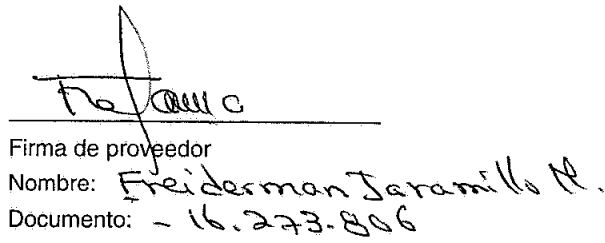 Firma de proveedor
Nombre: Freiderman Jaramillo M.
Documento: - 16.273.806